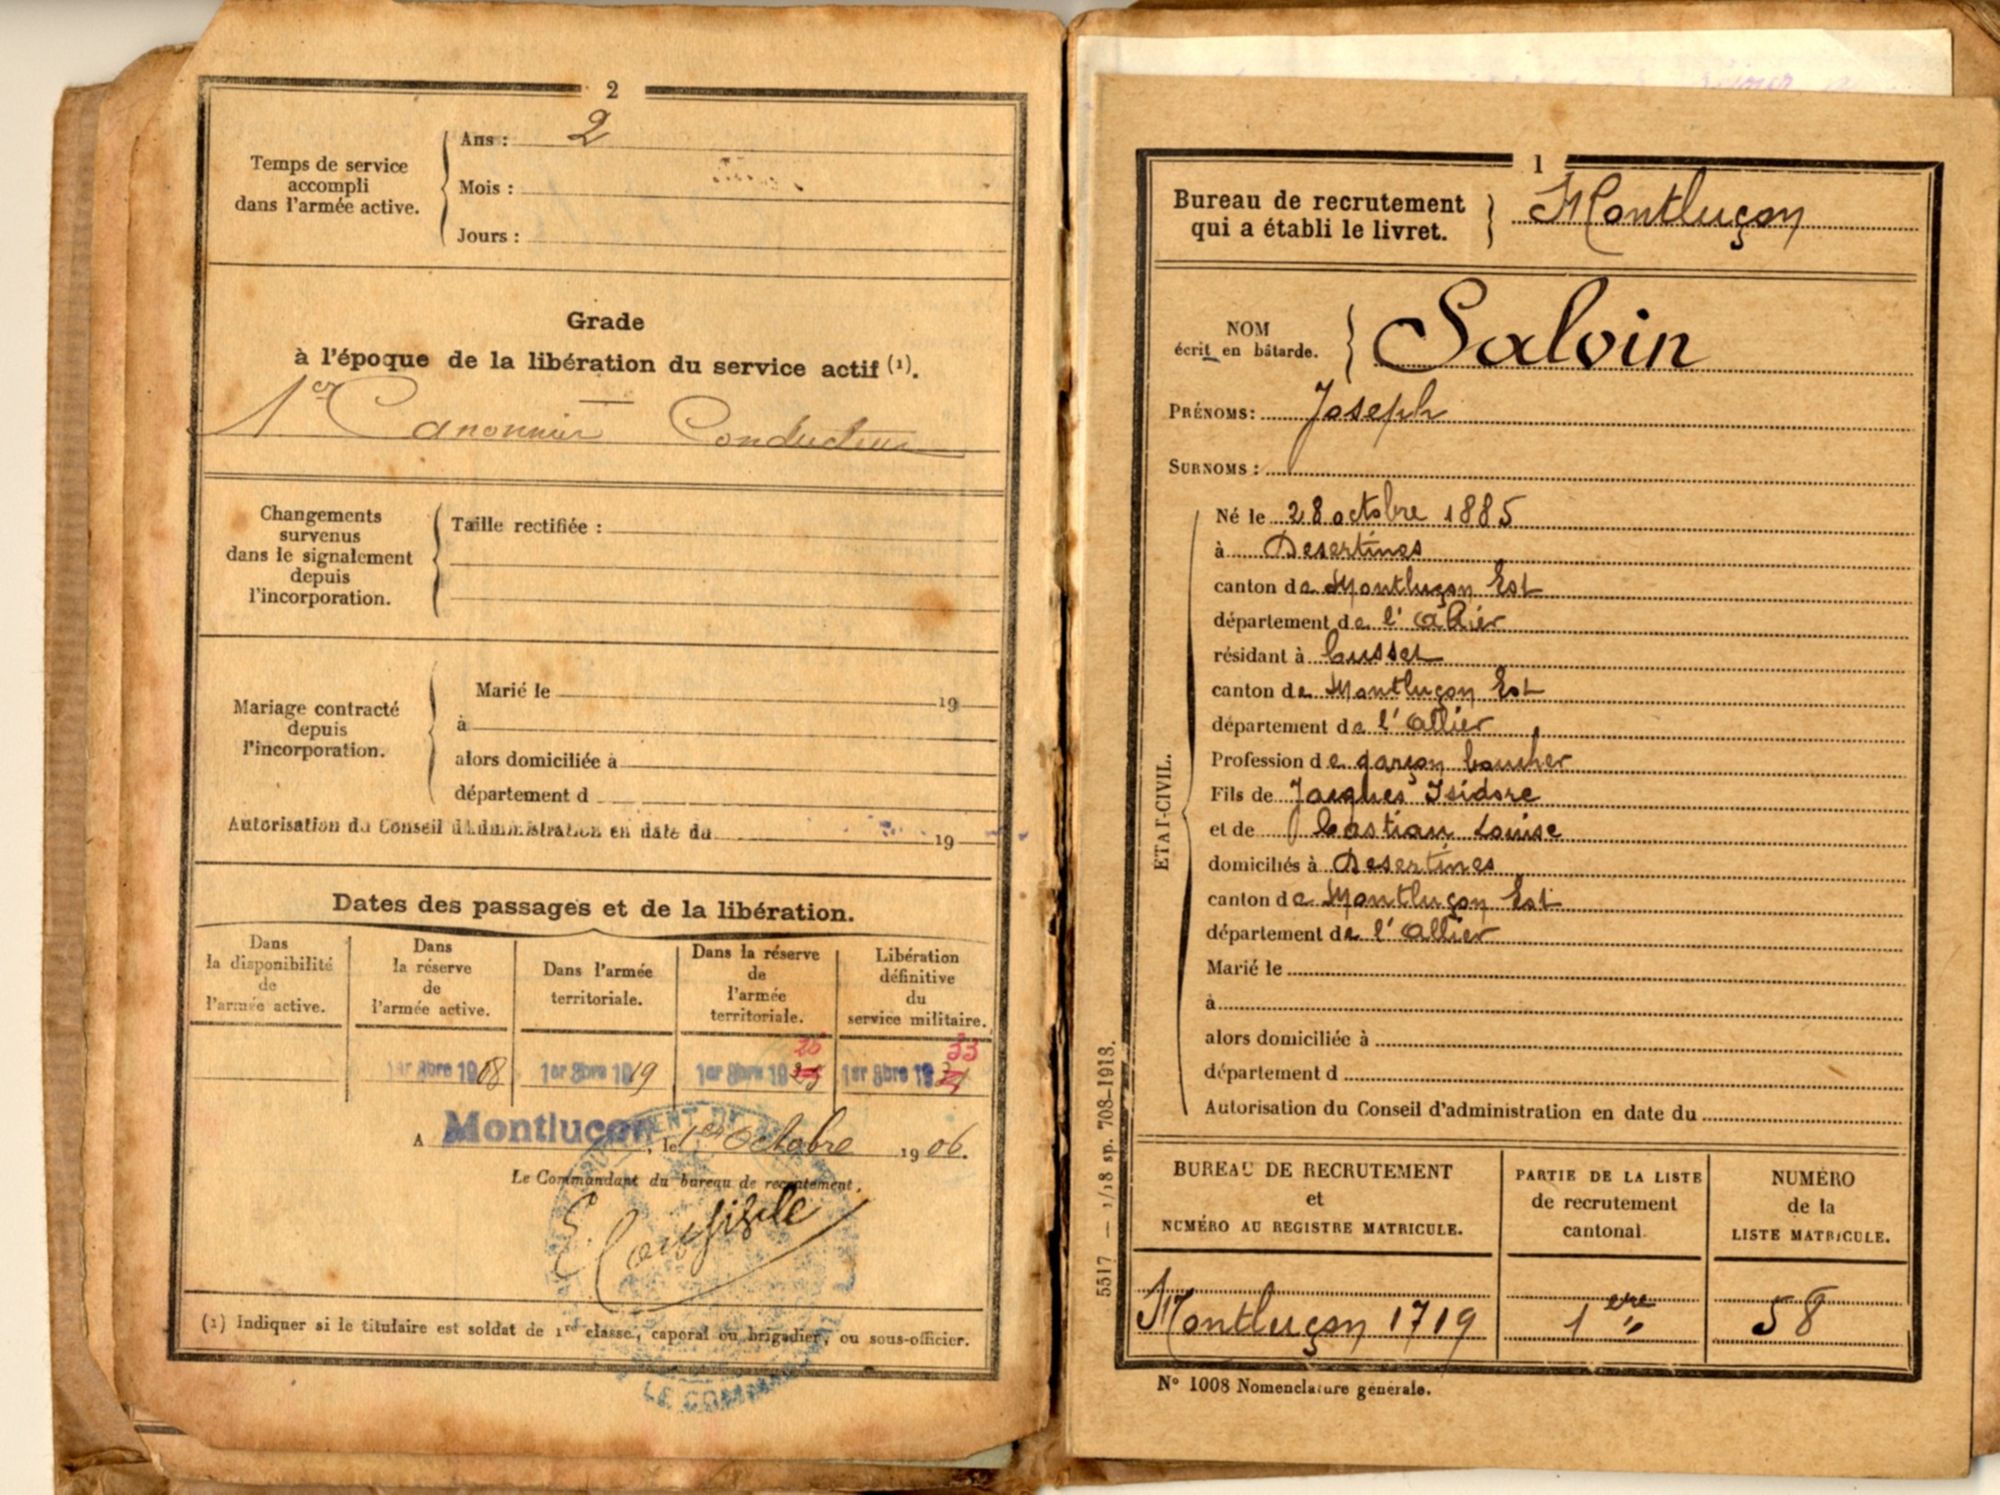 2
Temps de service
accompli
dans l'armée active.
Ans : 2
Mois :
Jours :
Grade
à l'époque de la libération du service actif (1).
1er Canonnier Conducteur
Changements
survenus
dans le signalement
depuis
l'incorporation.
Taille rectifiée :
Mariage contracté
depuis
l'incorporation.
Marié le 19
à
alors domiciliée à
département d
Autorisation du Conseil d'administration en date du 19
Dates des passages et de la libération.
Dans
la disponibilité
de
l'armée active.
Dans
la réserve
de
l'armée active.
Dans l'armée
territoriale.
Dans la réserve
de
l'armée
territoriale.
Libération
définitive
du
service militaire.
26
33
1er 8bre 1908
1er 8bre 1919
1er 8bre 19
1er 8bre 19
A Montluçon, le 1er Octobre 1906.
Le Commandant du bureau de recrutement.
(1) Indiquer si le titulaire est soldat de 1re classe, caporal ou brigadier, ou sous-officier.
LE COMM
1
Bureau de recrutement
qui a établi le livret.
Montluçon
NOM
écrit en bâtarde.
Salvin
PRÉNOMS: Joseph
SURNOMS :
ETAT-CIVIL.
Né le 28 octobre 1885
à Desertines
canton de Montluçon Est
département de l'Allier
résidant à Cusset
canton de Montluçon Est
département de l'Allier
Profession de garçon boucher
Fils de Jacques Isidore
et de Bastian Louise
domiciliés à Desertines
canton de Montluçon Est
département de l'Allier
Marié le
à
alors domiciliée à
département d
Autorisation du Conseil d'administration en date du
BUREAU DE RECRUTEMENT
et
NUMÉRO AU REGISTRE MATRICULE.
PARTIE DE LA LISTE
de recrutement
cantonal.
NUMÉRO
de la
LISTE MATRICULE.
Montluçon 1719
1ère
58
N° 1008 Nomenclature générale.
5517 — 1/18 sp. 708-1913.